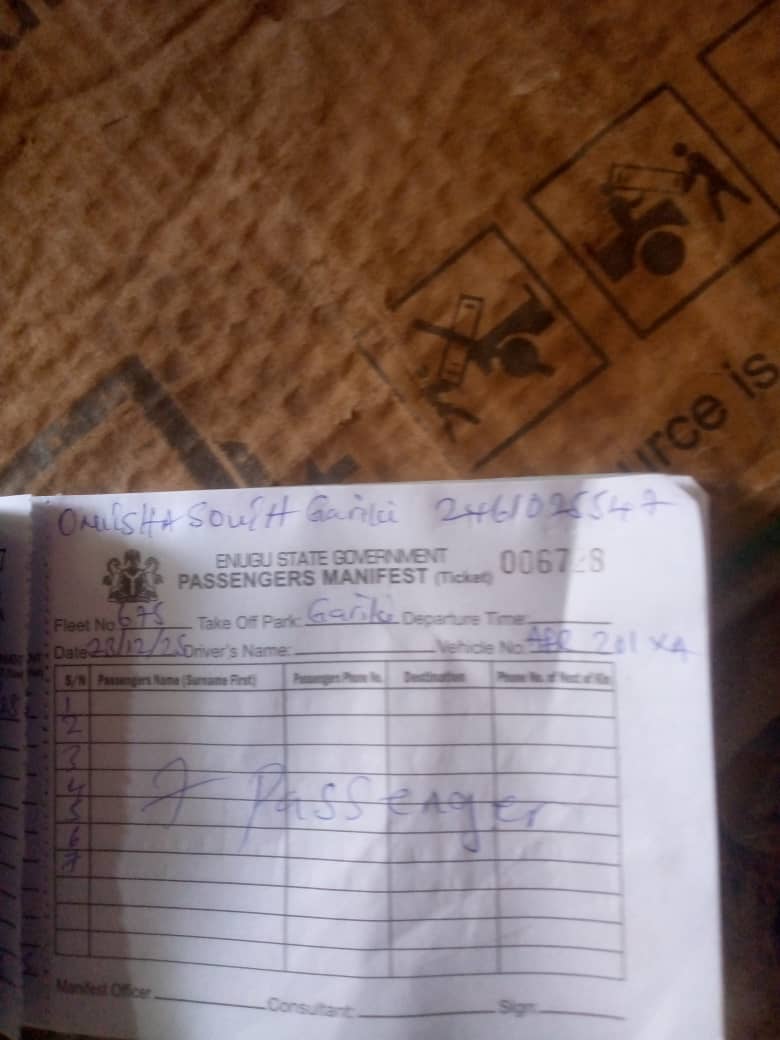 urce is
ONISHA SOUTH Gariki 2461025547
ENUGU STATE GOVERNMENT
PASSENGERS MANIFEST (Ticket) 006728
Fleet No 675 Take Off Park: Gariki Departure Time:
Date 23/12/25 Driver's Name: Vehicle No. 201 XA
S/N Passengers Name (Surname First) Passengers Phone No. Destination Phone No. of Next of Kin
1
2
3
4
5
6
7
7 Passenger
Manifest Officer Consultant: Sign: